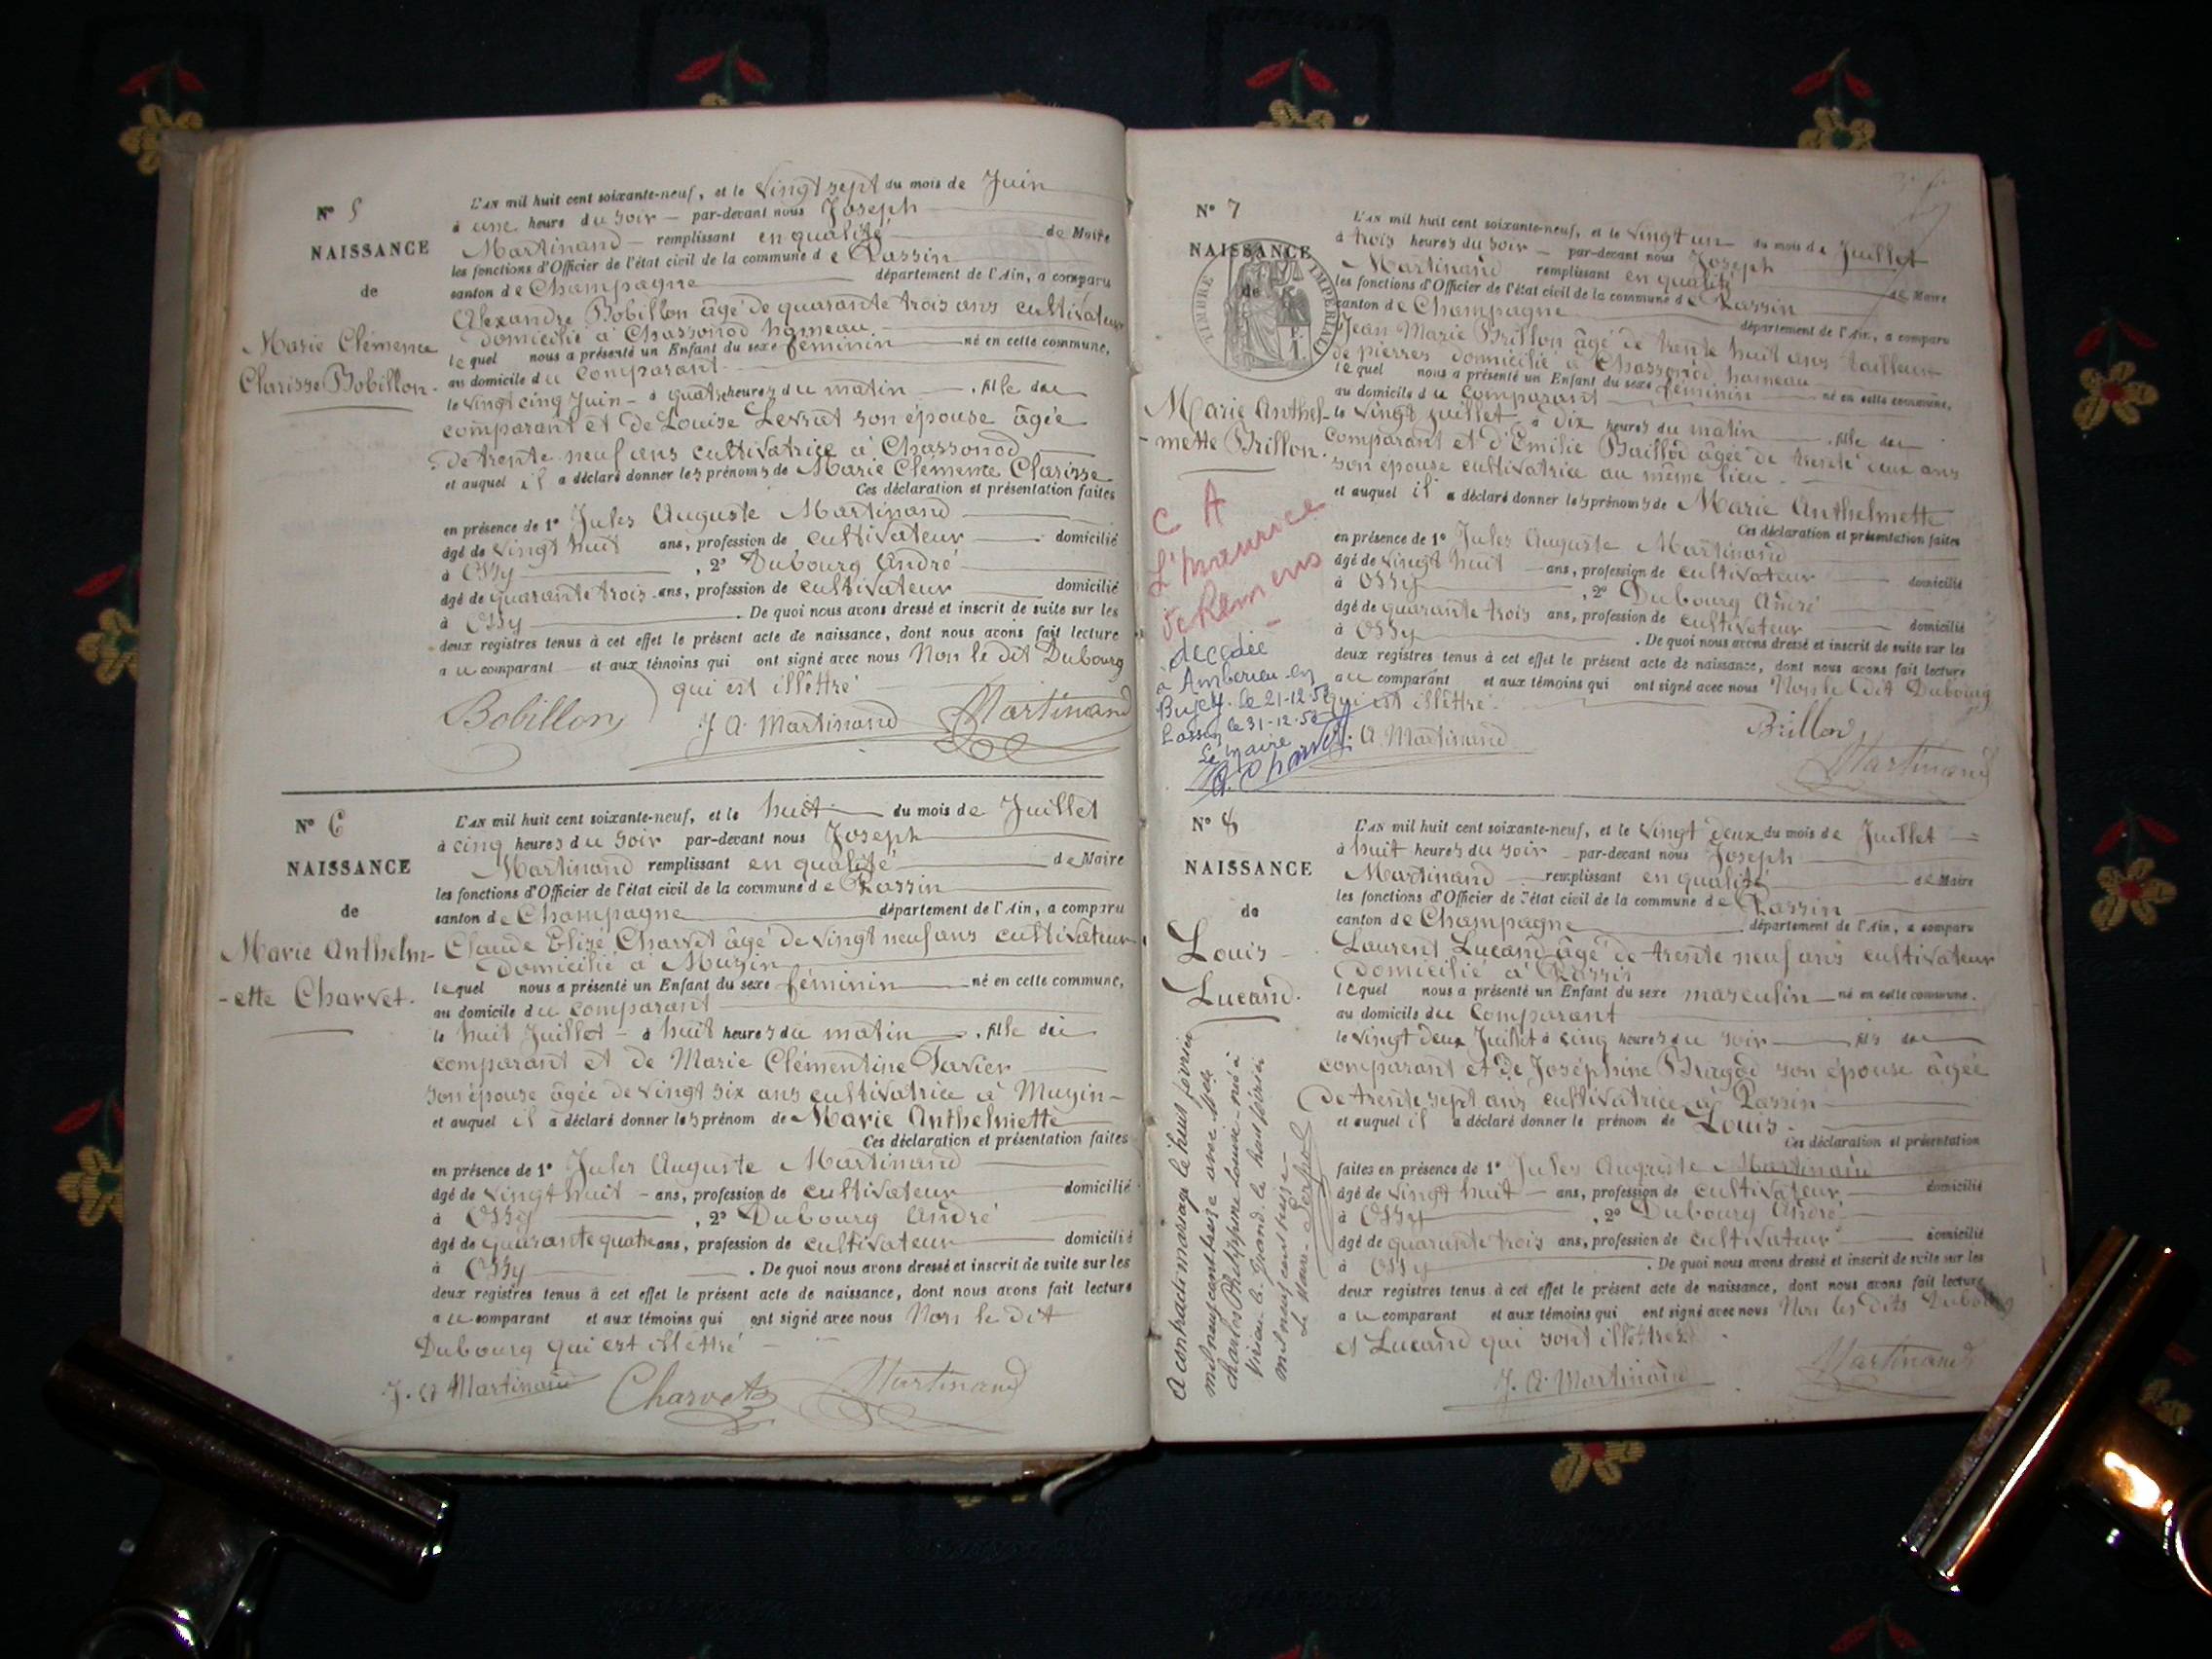 N° 5
NAISSANCE
de
Marie Clémence
Clarisse Bobillon.
L'AN mil huit cent soixante-neuf, et le Vingt sept du mois de Juin
à une heure du soir par-devant nous Joseph
Martinand remplissant en qualité de Maire
les fonctions d'Officier de l'état civil de la commune de Passin
canton de Champagne département de l'Ain, a comparu
Alexandre Bobillon âgé de quarante trois ans cultivateur
domicilié à Chassonod hameau
lequel nous a présenté un Enfant du sexe féminin né en cette commune,
au domicile du Comparant
le Vingt cinq Juin à quatre heures du matin, fille du
comparant et de Louise Levrat son épouse âgée
de trente neuf ans cultivatrice à Chassonod
et auquel il a déclaré donner les prénoms de Marie Clémence Clarisse
Ces déclaration et présentation faites
en présence de 1° Jules Auguste Martinand
âgé de Vingt huit ans, profession de cultivateur domicilié
à Ossy, 2° Dubourg André
âgé de quarante trois ans, profession de cultivateur domicilié
à Ossy. De quoi nous avons dressé et inscrit de suite sur les
deux registres tenus à cet effet le présent acte de naissance, dont nous avons fait lecture
au comparant et aux témoins qui ont signé avec nous Non le dit Dubourg
qui est illêttré
Bobillon J A Martinand Martinand
N° 6
NAISSANCE
de
Marie Anthelm-
-ette Charvet.
L'AN mil huit cent soixante-neuf, et le huit du mois de Juillet
à cinq heures du soir par-devant nous Joseph
Martinand remplissant en qualité de Maire
les fonctions d'Officier de l'état civil de la commune de Passin
canton de Champagne département de l'Ain, a comparu
Claude Elisé Charvet âgé de vingt neuf ans cultivateur
domicilié à Muzin
lequel nous a présenté un Enfant du sexe féminin né en cette commune,
au domicile du comparant
le huit Juillet à huit heures du matin, fille du
comparant et de Marie Clémentine Savier
son épouse âgée de vingt six ans cultivatrice à Muzin
et auquel il a déclaré donner les prénom de Marie Anthelmette
Ces déclaration et présentation faites
en présence de 1° Jules Auguste Martinand
âgé de vingt huit ans, profession de cultivateur domicilié
à Ossy, 2° Dubourg André
âgé de quarante quatre ans, profession de cultivateur domicilié
à Ossy. De quoi nous avons dressé et inscrit de suite sur les
deux registres tenus à cet effet le présent acte de naissance, dont nous avons fait lecture
au comparant et aux témoins qui ont signé avec nous Non le dit
Dubourg qui est illêttré
J. A Martinand Charvet Martinand
N° 7
NAISSANCE
de
TIMBRE IMPÉRIAL
Marie Anthel-
-mette Brillon.
C A
L' maurice
de Rémens
décédée
à Ambérieu-en
Bugey le 21-12-52
Passin le 31-12-52
Le maire
L'AN mil huit cent soixante-neuf, et le vingt un du mois de Juillet
à trois heures du soir par-devant nous Joseph
Martinand remplissant en qualité de Maire
les fonctions d'Officier de l'état civil de la commune de Passin
canton de Champagne département de l'Ain, a comparu
Jean Marie Brillon âgé de trente huit ans tailleur
de pierres domicilié à Chassonod hameau
lequel nous a présenté un Enfant du sexe féminin né en cette commune,
au domicile du Comparant
le Vingt juillet à dix heures du matin, fille du
Comparant et d'Emilie Baillod âgée de trente deux ans
son épouse cultivatrice au même lieu.
et auquel il a déclaré donner les prénoms de Marie Anthelmette
Ces déclaration et présentation faites
en présence de 1° Jules Auguste Martinand
âgé de Vingt huit ans, profession de cultivateur domicilié
à Ossy, 2° Dubourg André
âgé de quarante trois ans, profession de cultivateur domicilié
à Ossy. De quoi nous avons dressé et inscrit de suite sur les
deux registres tenus à cet effet le présent acte de naissance, dont nous avons fait lecture
au comparant et aux témoins qui ont signé avec nous Non le dit Dubourg
qui est illêttré.
A Martinand Brillon Martinand
N° 8
NAISSANCE
de
Louis
Lucand.
A contracté mariage le huit février
mil neuf cent treize avec
charlos Philippine Louise née à
Virieu-le-Grand. le huit février
mil neuf cent treize
Le Maire
L'AN mil huit cent soixante-neuf, et le Vingt deux du mois de Juillet
à huit heures du soir par-devant nous Joseph
Martinand remplissant en qualité de Maire
les fonctions d'Officier de l'état civil de la commune de Passin
canton de Champagne département de l'Ain, a comparu
Laurent Lucand âgé de trente neuf ans cultivateur
domicilié à Passin
lequel nous a présenté un Enfant du sexe masculin né en cette commune.
au domicile du Comparant
le vingt deux Juillet à cinq heures du soir fils du
comparant et de Joséphine son épouse âgée
de trente sept ans cultivatrice à Passin
et auquel il a déclaré donner le prénom de Louis.
Ces déclaration et présentation
faites en présence de 1° Jules Auguste Martinand
âgé de vingt huit ans, profession de cultivateur domicilié
à Ossy, 2° Dubourg André
âgé de quarante trois ans, profession de cultivateur domicilié
à Ossy. De quoi nous avons dressé et inscrit de suite sur les
deux registres tenus à cet effet le présent acte de naissance, dont nous avons fait lecture
au comparant et aux témoins qui ont signé avec nous Non les dits Dubourg
et Lucand qui sont illêttrés.
J. A. Martinand Martinand